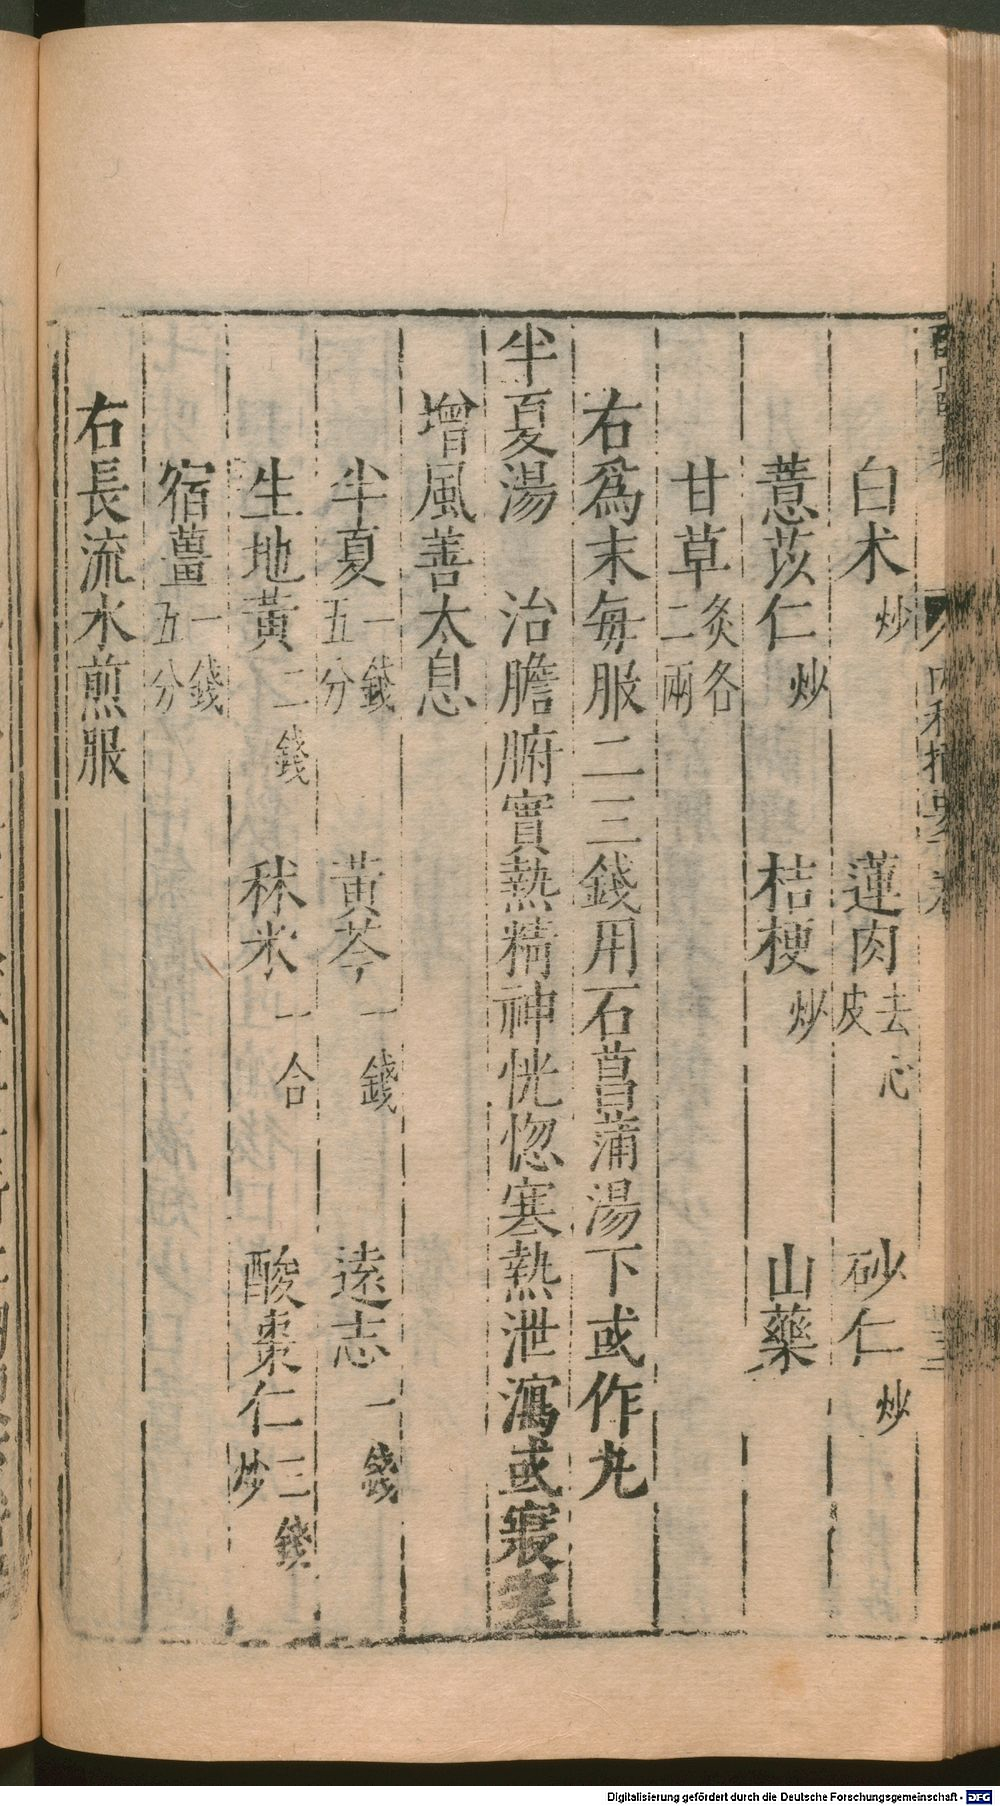 白术炒　蓮肉去心皮　砂仁炒
薏苡仁炒　桔梗炒　山藥
甘草炙各二兩
右爲末每服二三錢用石菖蒲湯下或作丸
半夏湯　治膽腑實熱精神恍惚寒熱泄瀉或寢
增風善太息
半夏一錢五分　黃芩一錢　遠志一錢
生地黃二錢　秫米一合　酸棗仁三錢炒
宿薑一錢五分
右長流水煎服
Digitalisierung gefördert durch die Deutsche Forschungsgemeinschaft - DFG